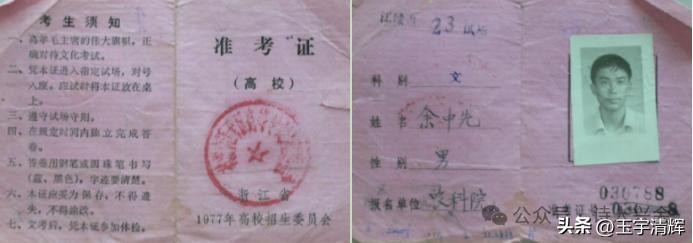 考生须知
一、高举毛主席的伟大旗帜,正
确对待文化考试。
二、凭本证进入指定试场,对号
入座。应试时将本证放在桌
上。
三、遵守试场守则。
四、在规定时间内独立完成答
卷。
五、答卷用钢笔或圆珠笔书写
(蓝、黑色),字迹要清楚。
六、本证应妥为保存,不得遗
失,不得涂改。
七、文考后,凭本证参加体检。
准考证
(高校)
浙江省
1977年高校招生委员会
23试场
科别 文
姓名 余中先
性别 男
报名单位 农科院
030788
准考证号 030788
公众号
头条 @玉宇清辉